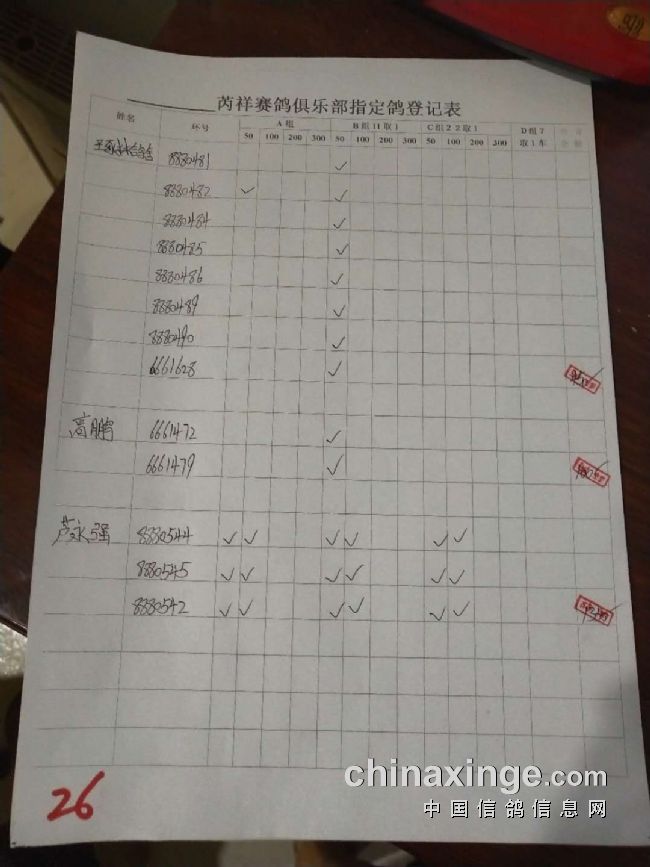 芮祥赛鸽俱乐部指定鸽登记表
姓名 环号 A组 B组11取1 C组22取1 D组7取1车
50 100 200 300 50 100 200 300 50 100 200 300
8880481 ✓
8880482 ✓ ✓
8880484 ✓
8880485 ✓
8880486 ✓
8880489 ✓
8880490 ✓
6661628 ✓
高鹏 6661472 ✓
6661479 ✓
芦永强 8880544 ✓ ✓ ✓ ✓ ✓ ✓
8880545 ✓ ✓ ✓ ✓ ✓ ✓
8880542 ✓ ✓ ✓ ✓ ✓ ✓
26
chinaxinge.com
中国信鸽信息网